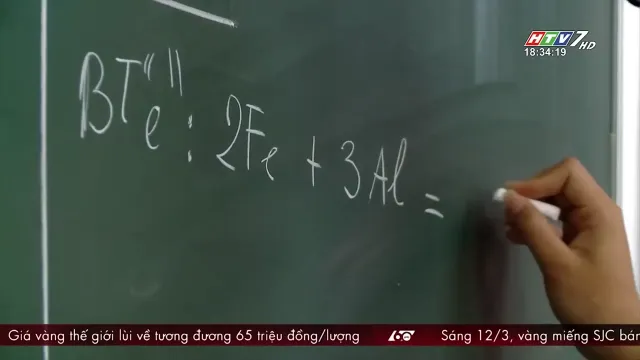 HTV7 HD
18:34:19
BTe "": 2Fe + 3Al =
Giá vàng thế giới lùi về tương đương 65 triệu đồng/lượng 60 Sáng 12/3, vàng miếng SJC bán